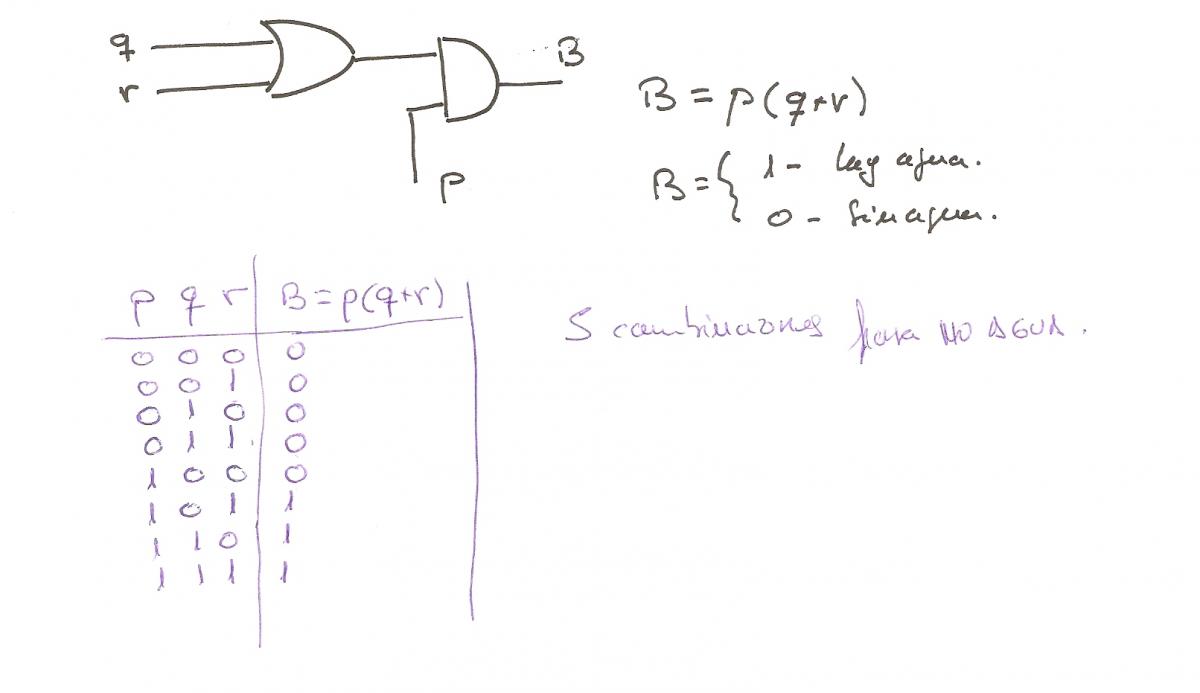 q
r
B
P
B = p(q+r)
B = { 1 - hay agua.
0 - sin agua.
p q r B = p(q+r)
0 0 0 0
0 0 1 0
0 1 0 0
0 1 1 0
1 0 0 0
1 0 1 1
1 1 0 1
1 1 1 1
5 combinaciones para NO AGUA.